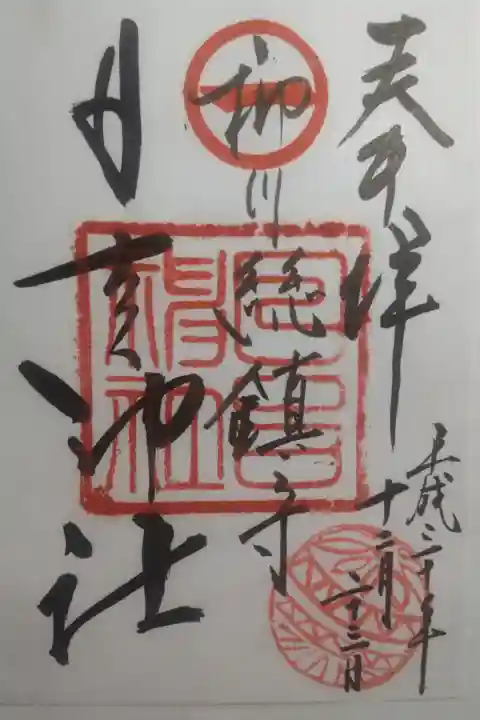 奉拝
柳川総鎮守
日吉神社
日吉神社
平成三十年
十二月
二十三日